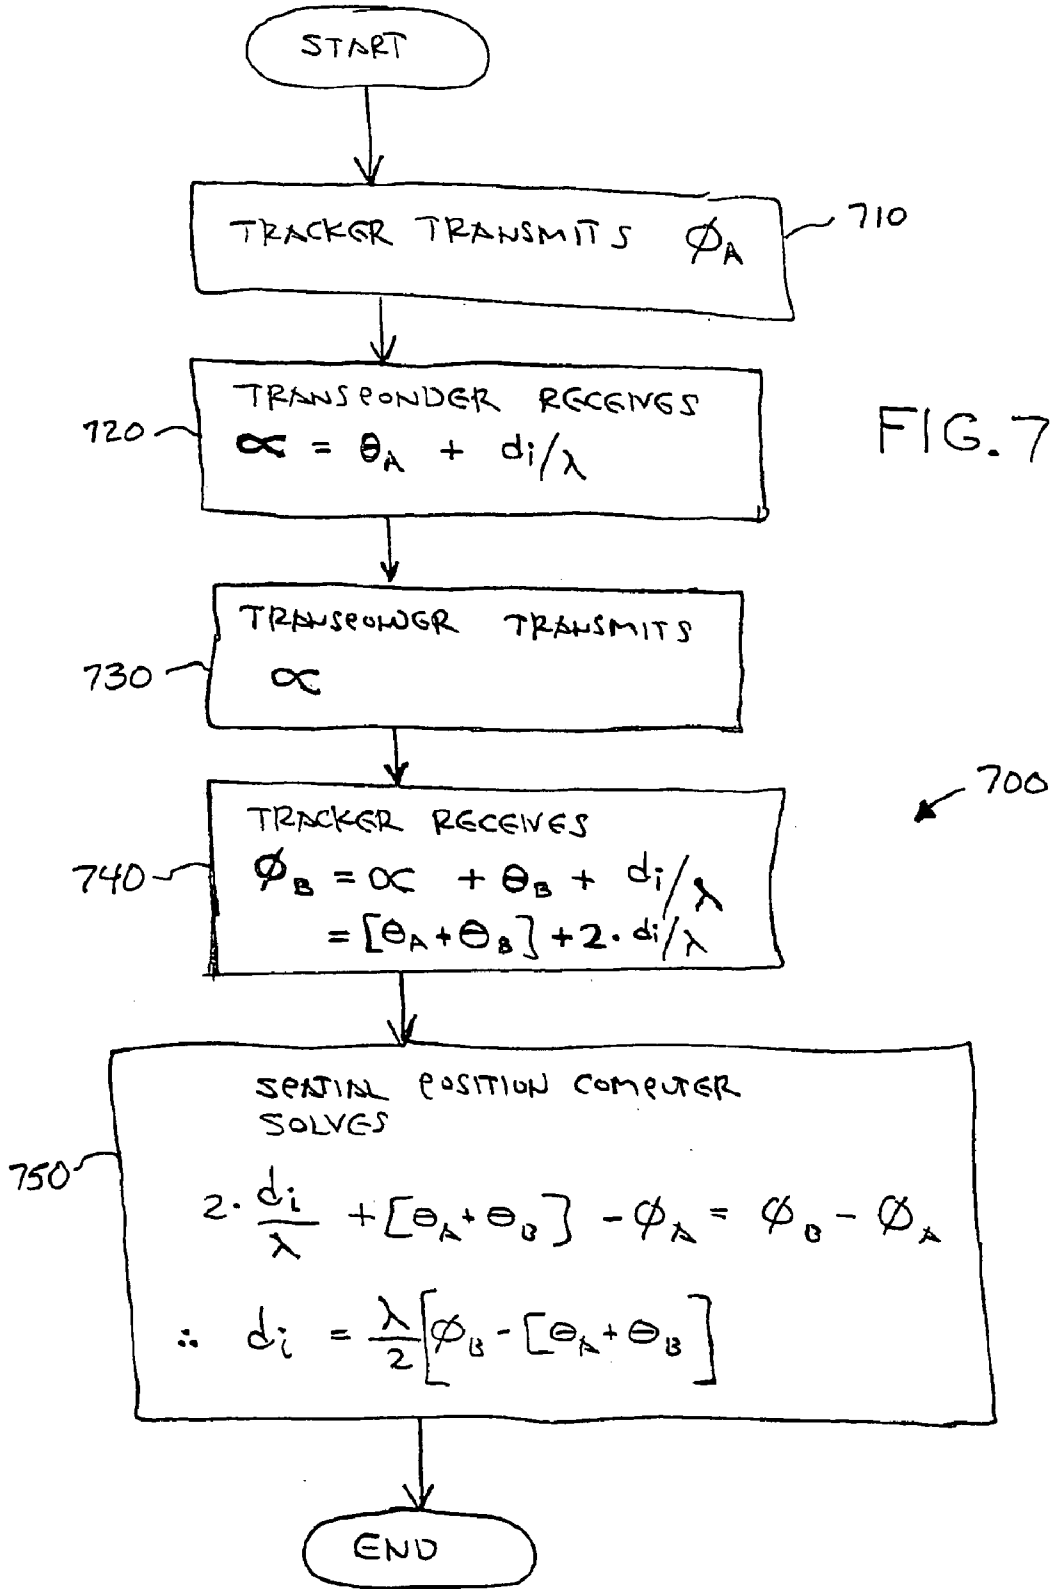 START
TRACKER TRANSMITS ϕA
710
TRANSPONDER RECEIVES
∝ = θA + di/λ
720
FIG. 7
TRANSPONDER TRANSMITS
∝
730
700
TRACKER RECEIVES
ϕB = ∝ + θB + di/λ
= [θA + θB] + 2 · di/λ
740
SPATIAL POSITION COMPUTER
SOLVES
750
2 · di/λ + [θA + θB] - ϕA = ϕB - ϕA
∴ di = λ/2 [ϕB - [θA + θB]
END